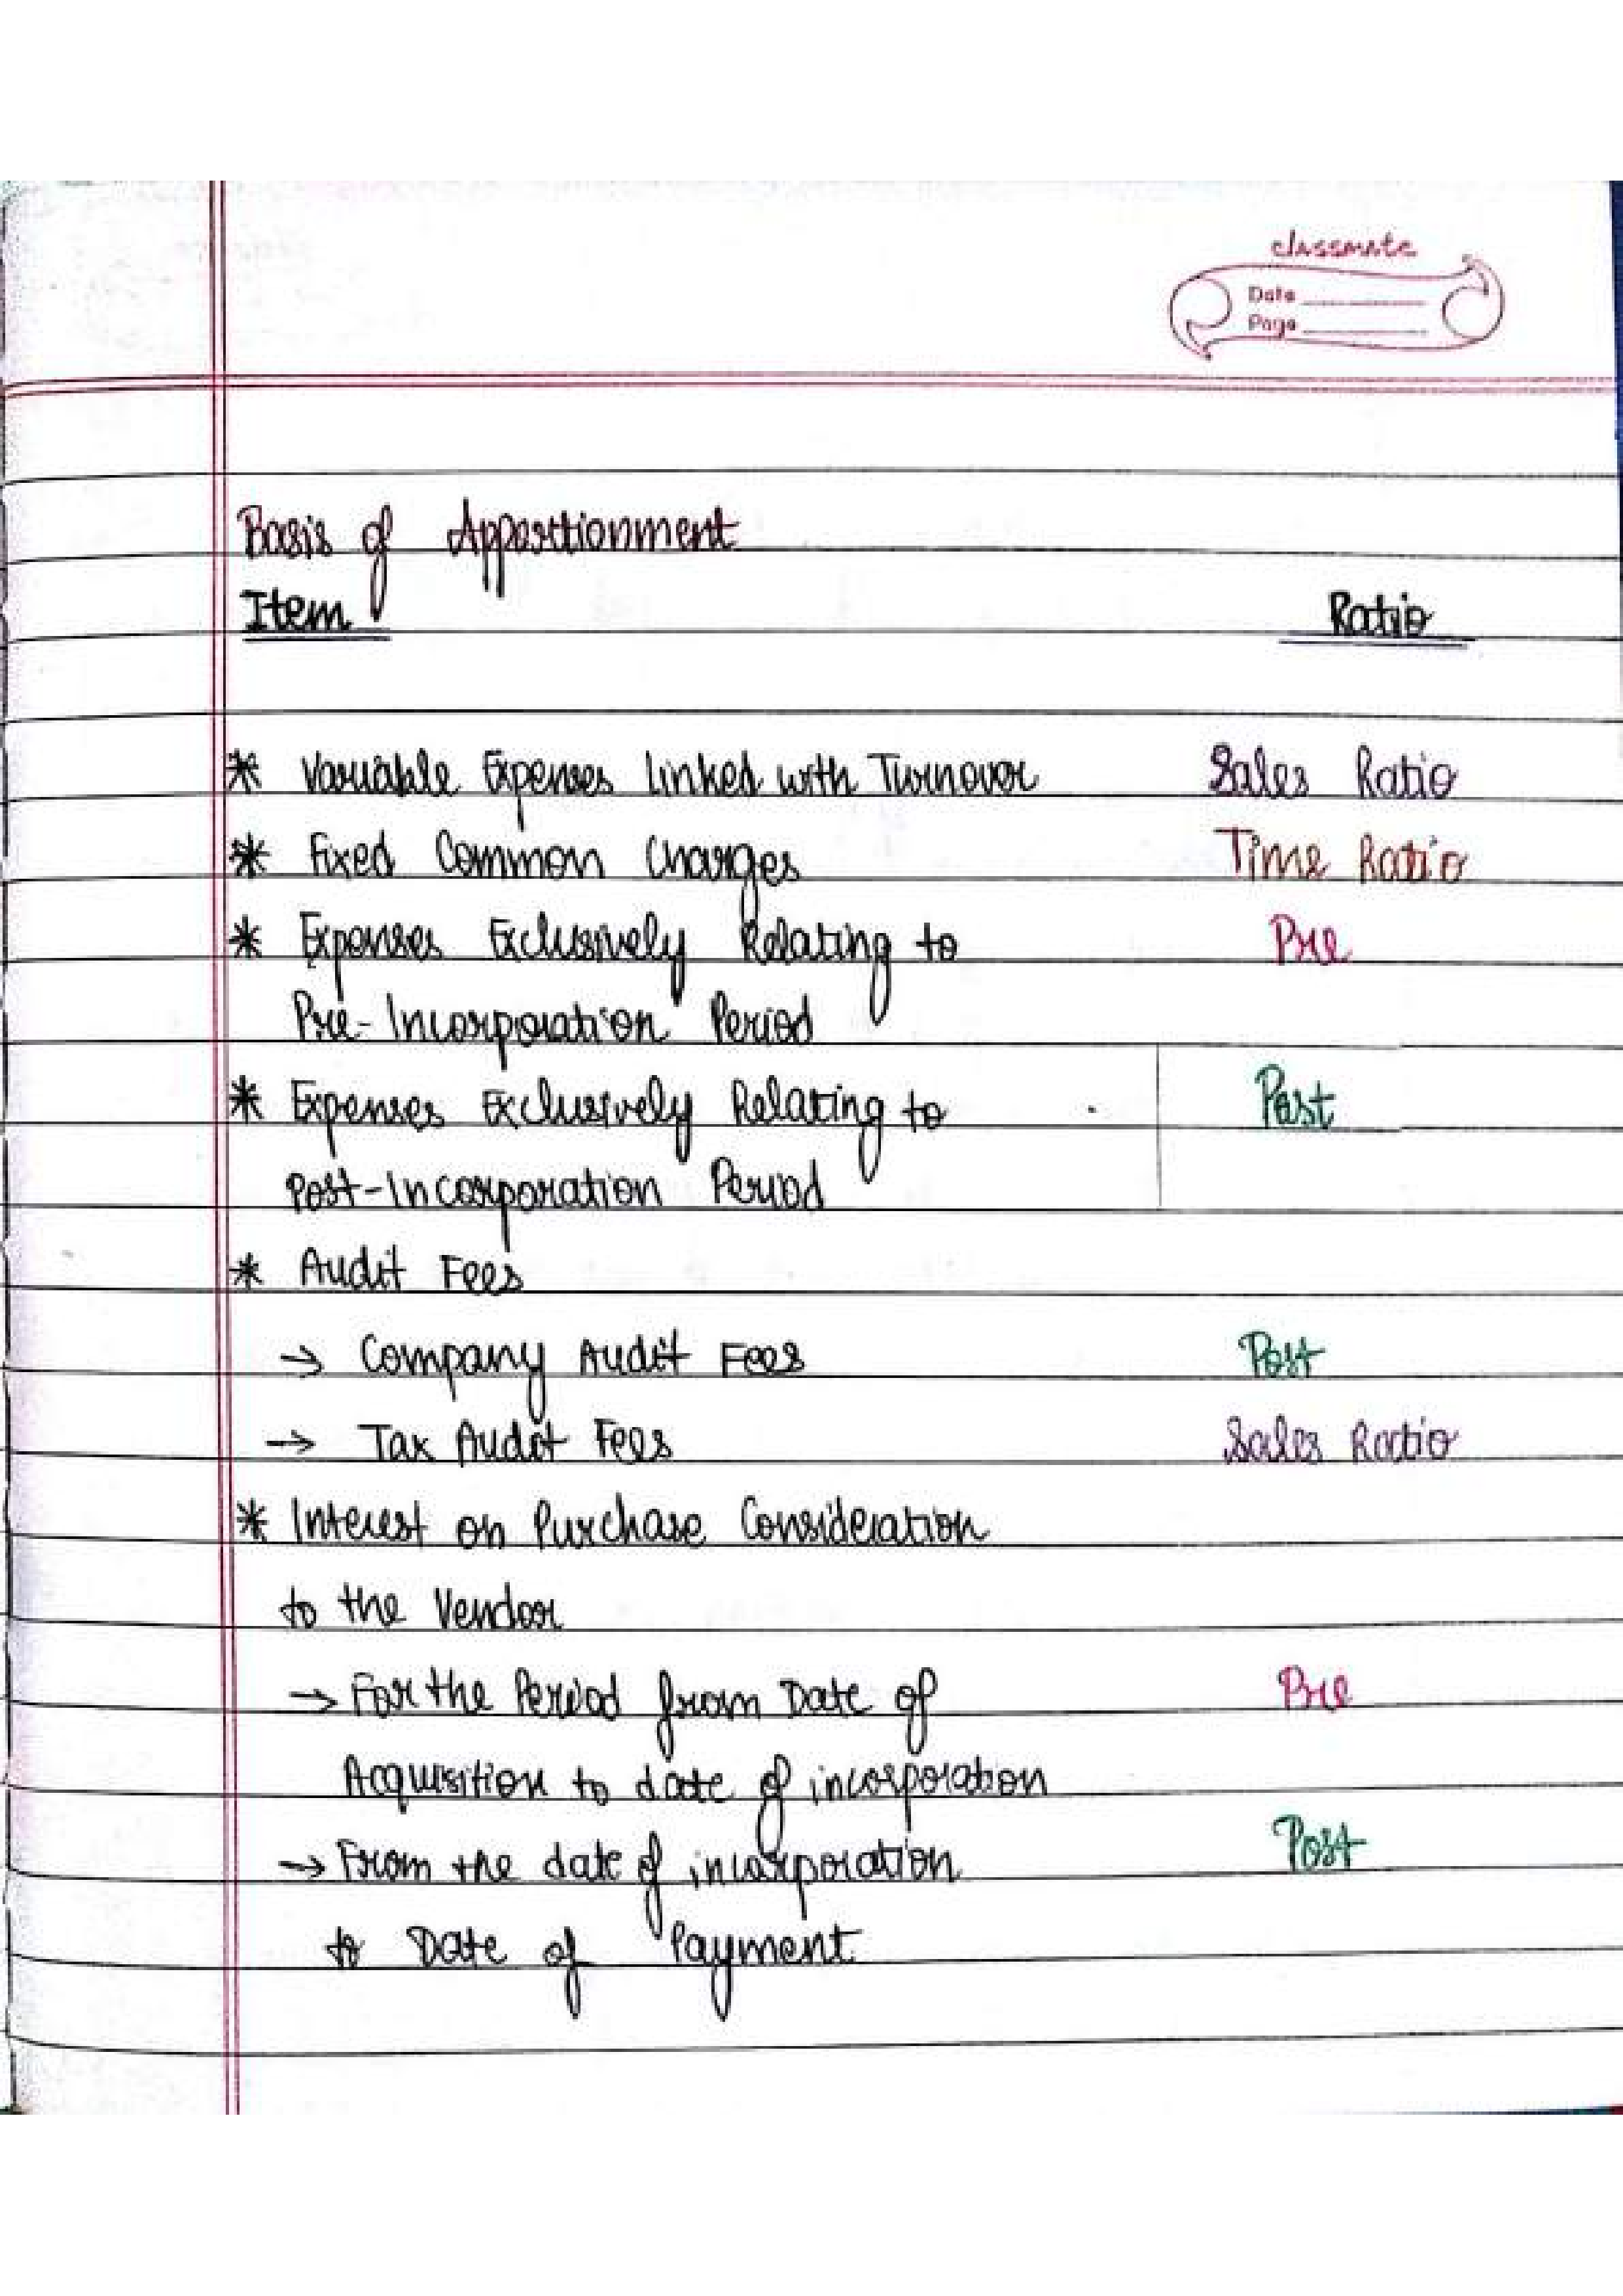 classmate
Date
Page
Basis of Apportionment
Item Ratio
* Variable Expenses linked with Turnover Sales Ratio
* Fixed Common Charges Time Ratio
* Expenses Exclusively Relating to Pre
Pre-Incorporation Period
* Expenses Exclusively Relating to Post
Post-Incorporation Period
* Audit Fees
→ Company Audit Fees Post
→ Tax Audit Fees Sales Ratio
* Interest on Purchase Consideration
to the Vendor
→ For the Period from Date of Pre
Acquisition to date of incorporation
→ From the date of incorporation Post
to Date of Payment